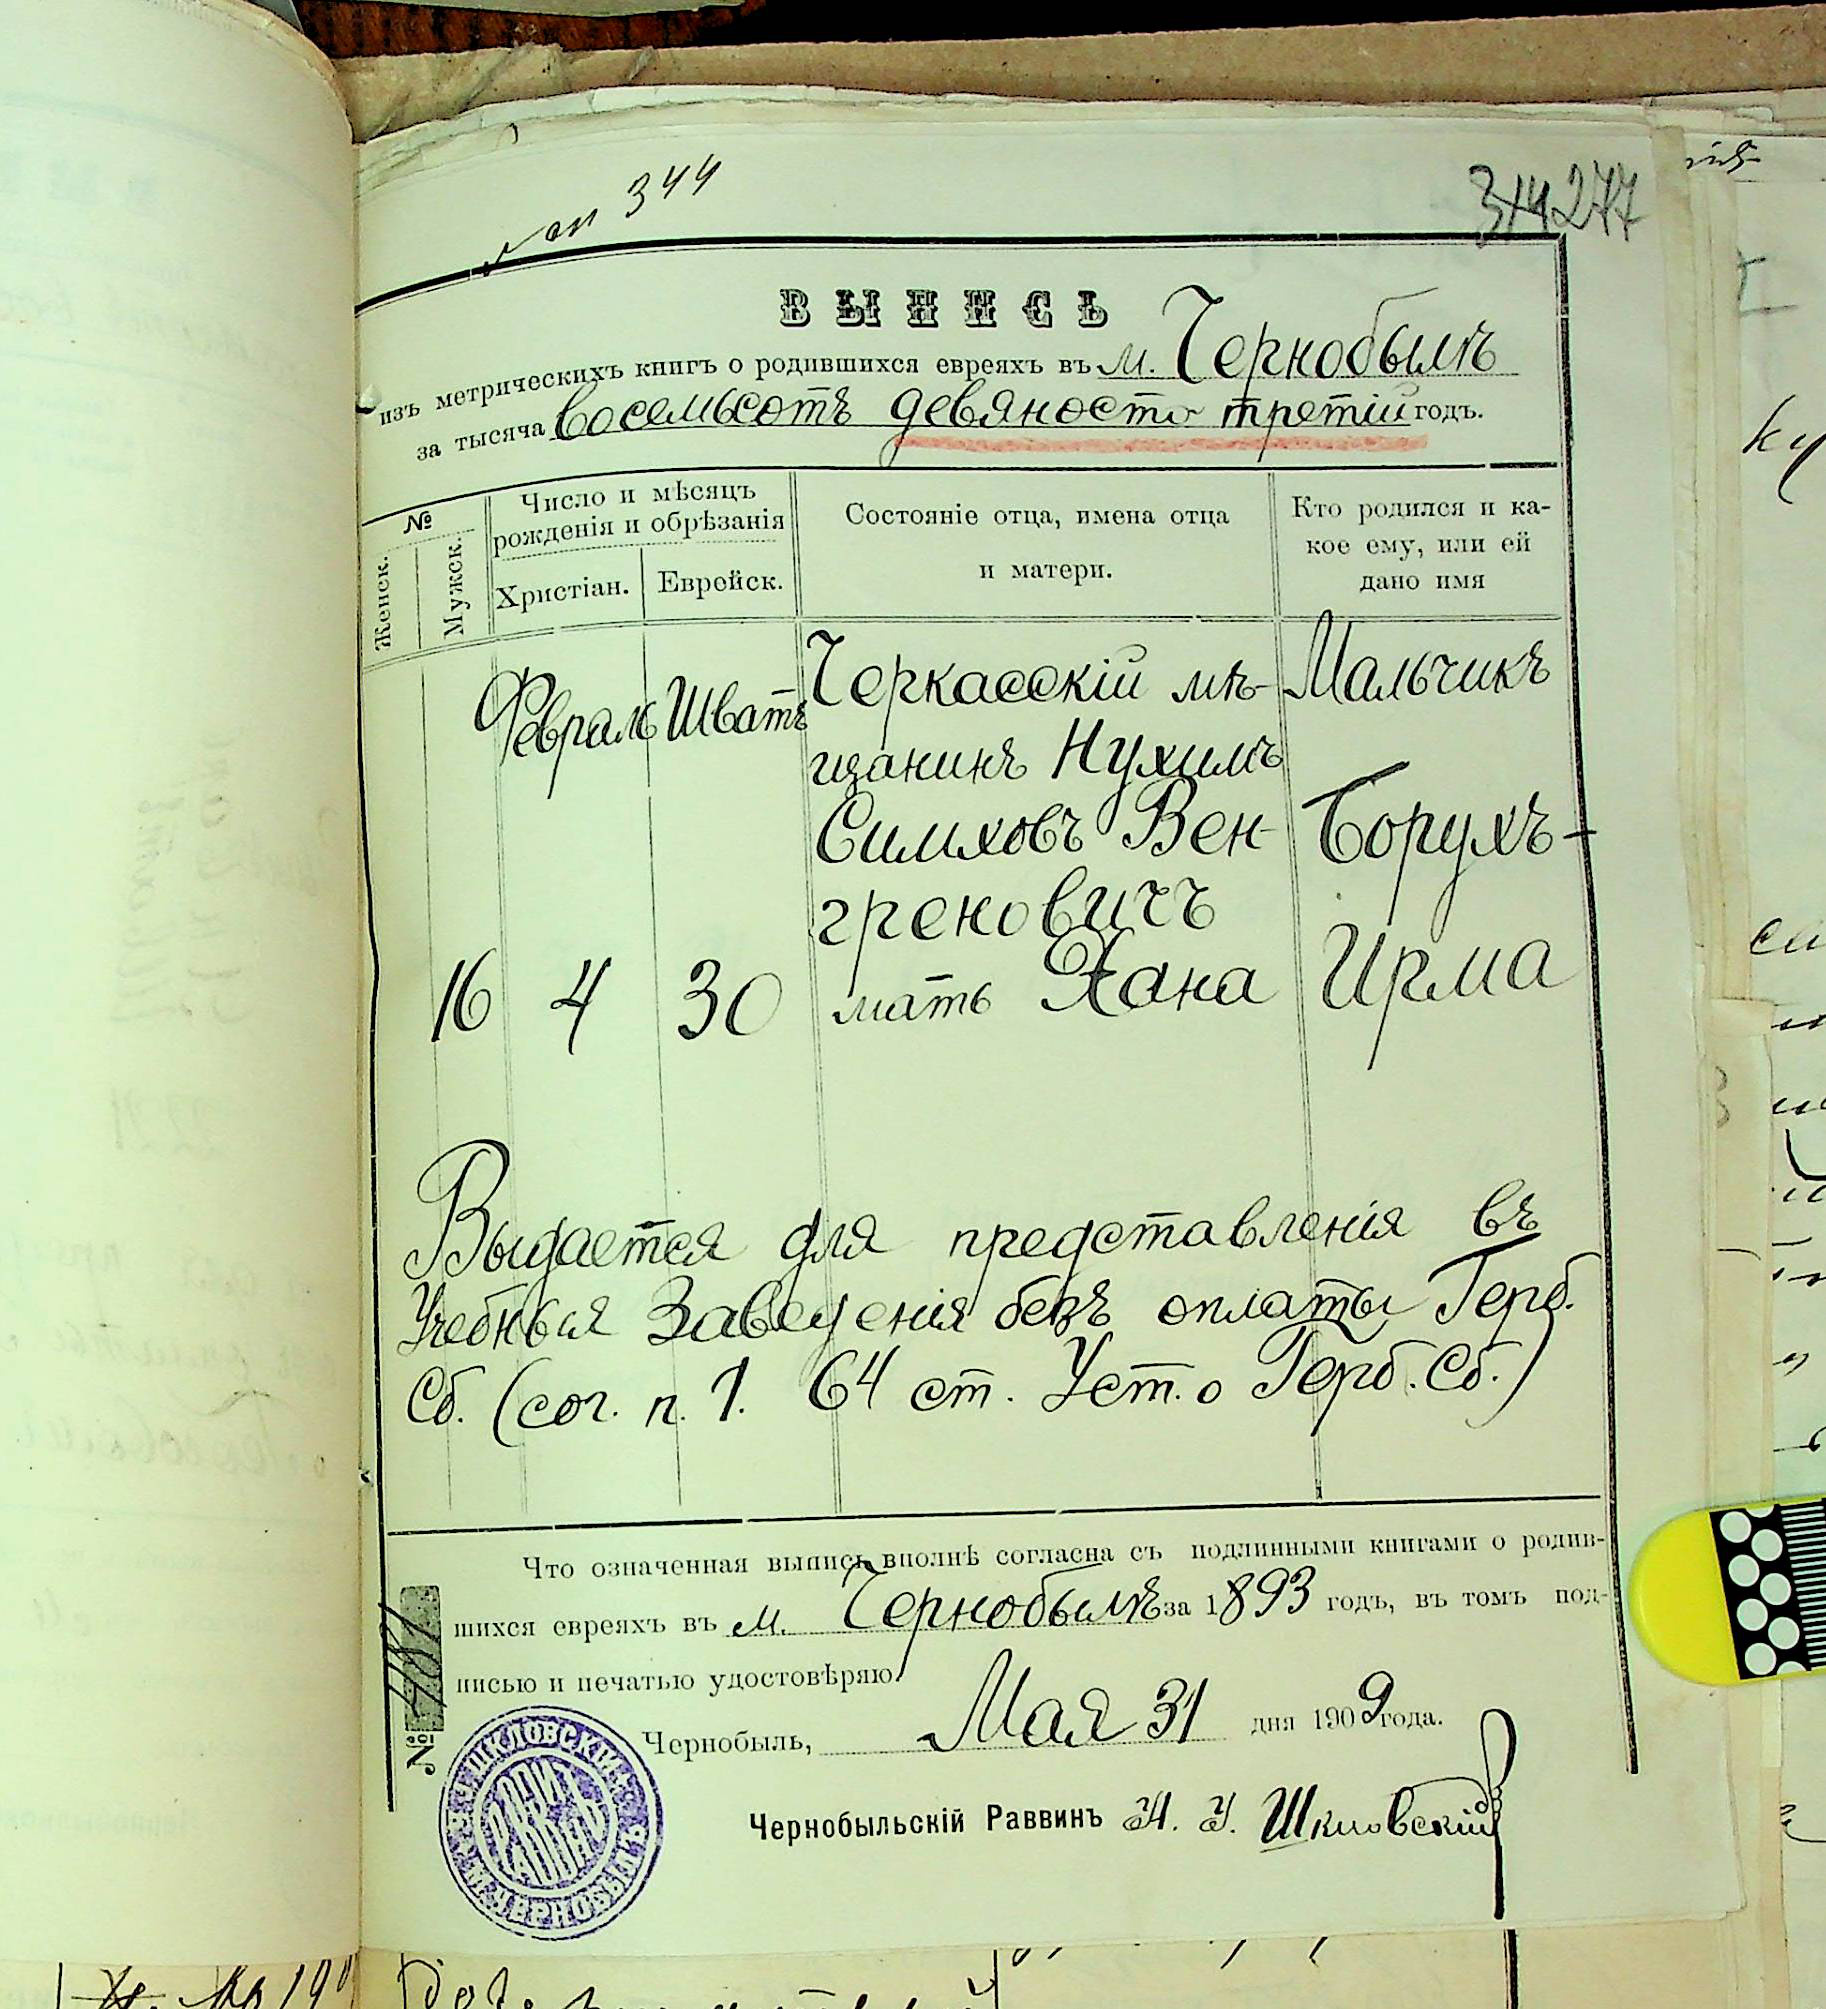 344
277
ВЫПИСЬ
изъ метрическихъ книгъ о родившихся евреяхъ въ м. Чернобылѣ
за тысяча восемьсотъ девяносто третій годъ.
№
Женск.
Мужск.
Число и мѣсяцъ
рожденія и обрѣзанія
Христіан.
Еврейск.
Состояніе отца, имена отца
и матери.
Кто родился и ка-
кое ему, или ей
дано имя
Февраль Шватъ Черкасскій мѣ- Мальчикъ
щанинъ Нухимъ
Симховъ Вен- Борухъ-
греновичъ
16 4 30 мать Хана Ирма
Выдается для представленія въ
Учебныя Заведенія безъ оплаты Герб.
Сб. (сог. п. 1. 64 ст. Уст. о Герб. Сб.)
Что означенная выпись вполнѣ согласна съ подлинными книгами о родив-
шихся евреяхъ въ м. Чернобылѣ за 1893 годъ, въ томъ под-
писью и печатью удостовѣряю.
№
Чернобыль, Мая 31 дня 1909 года.
Чернобыльскій Раввинъ Н. У. Шкловскій
ШКЛОВСКІЙ
РАВВИНЪ
М. ЧЕРНОБЫЛЬ